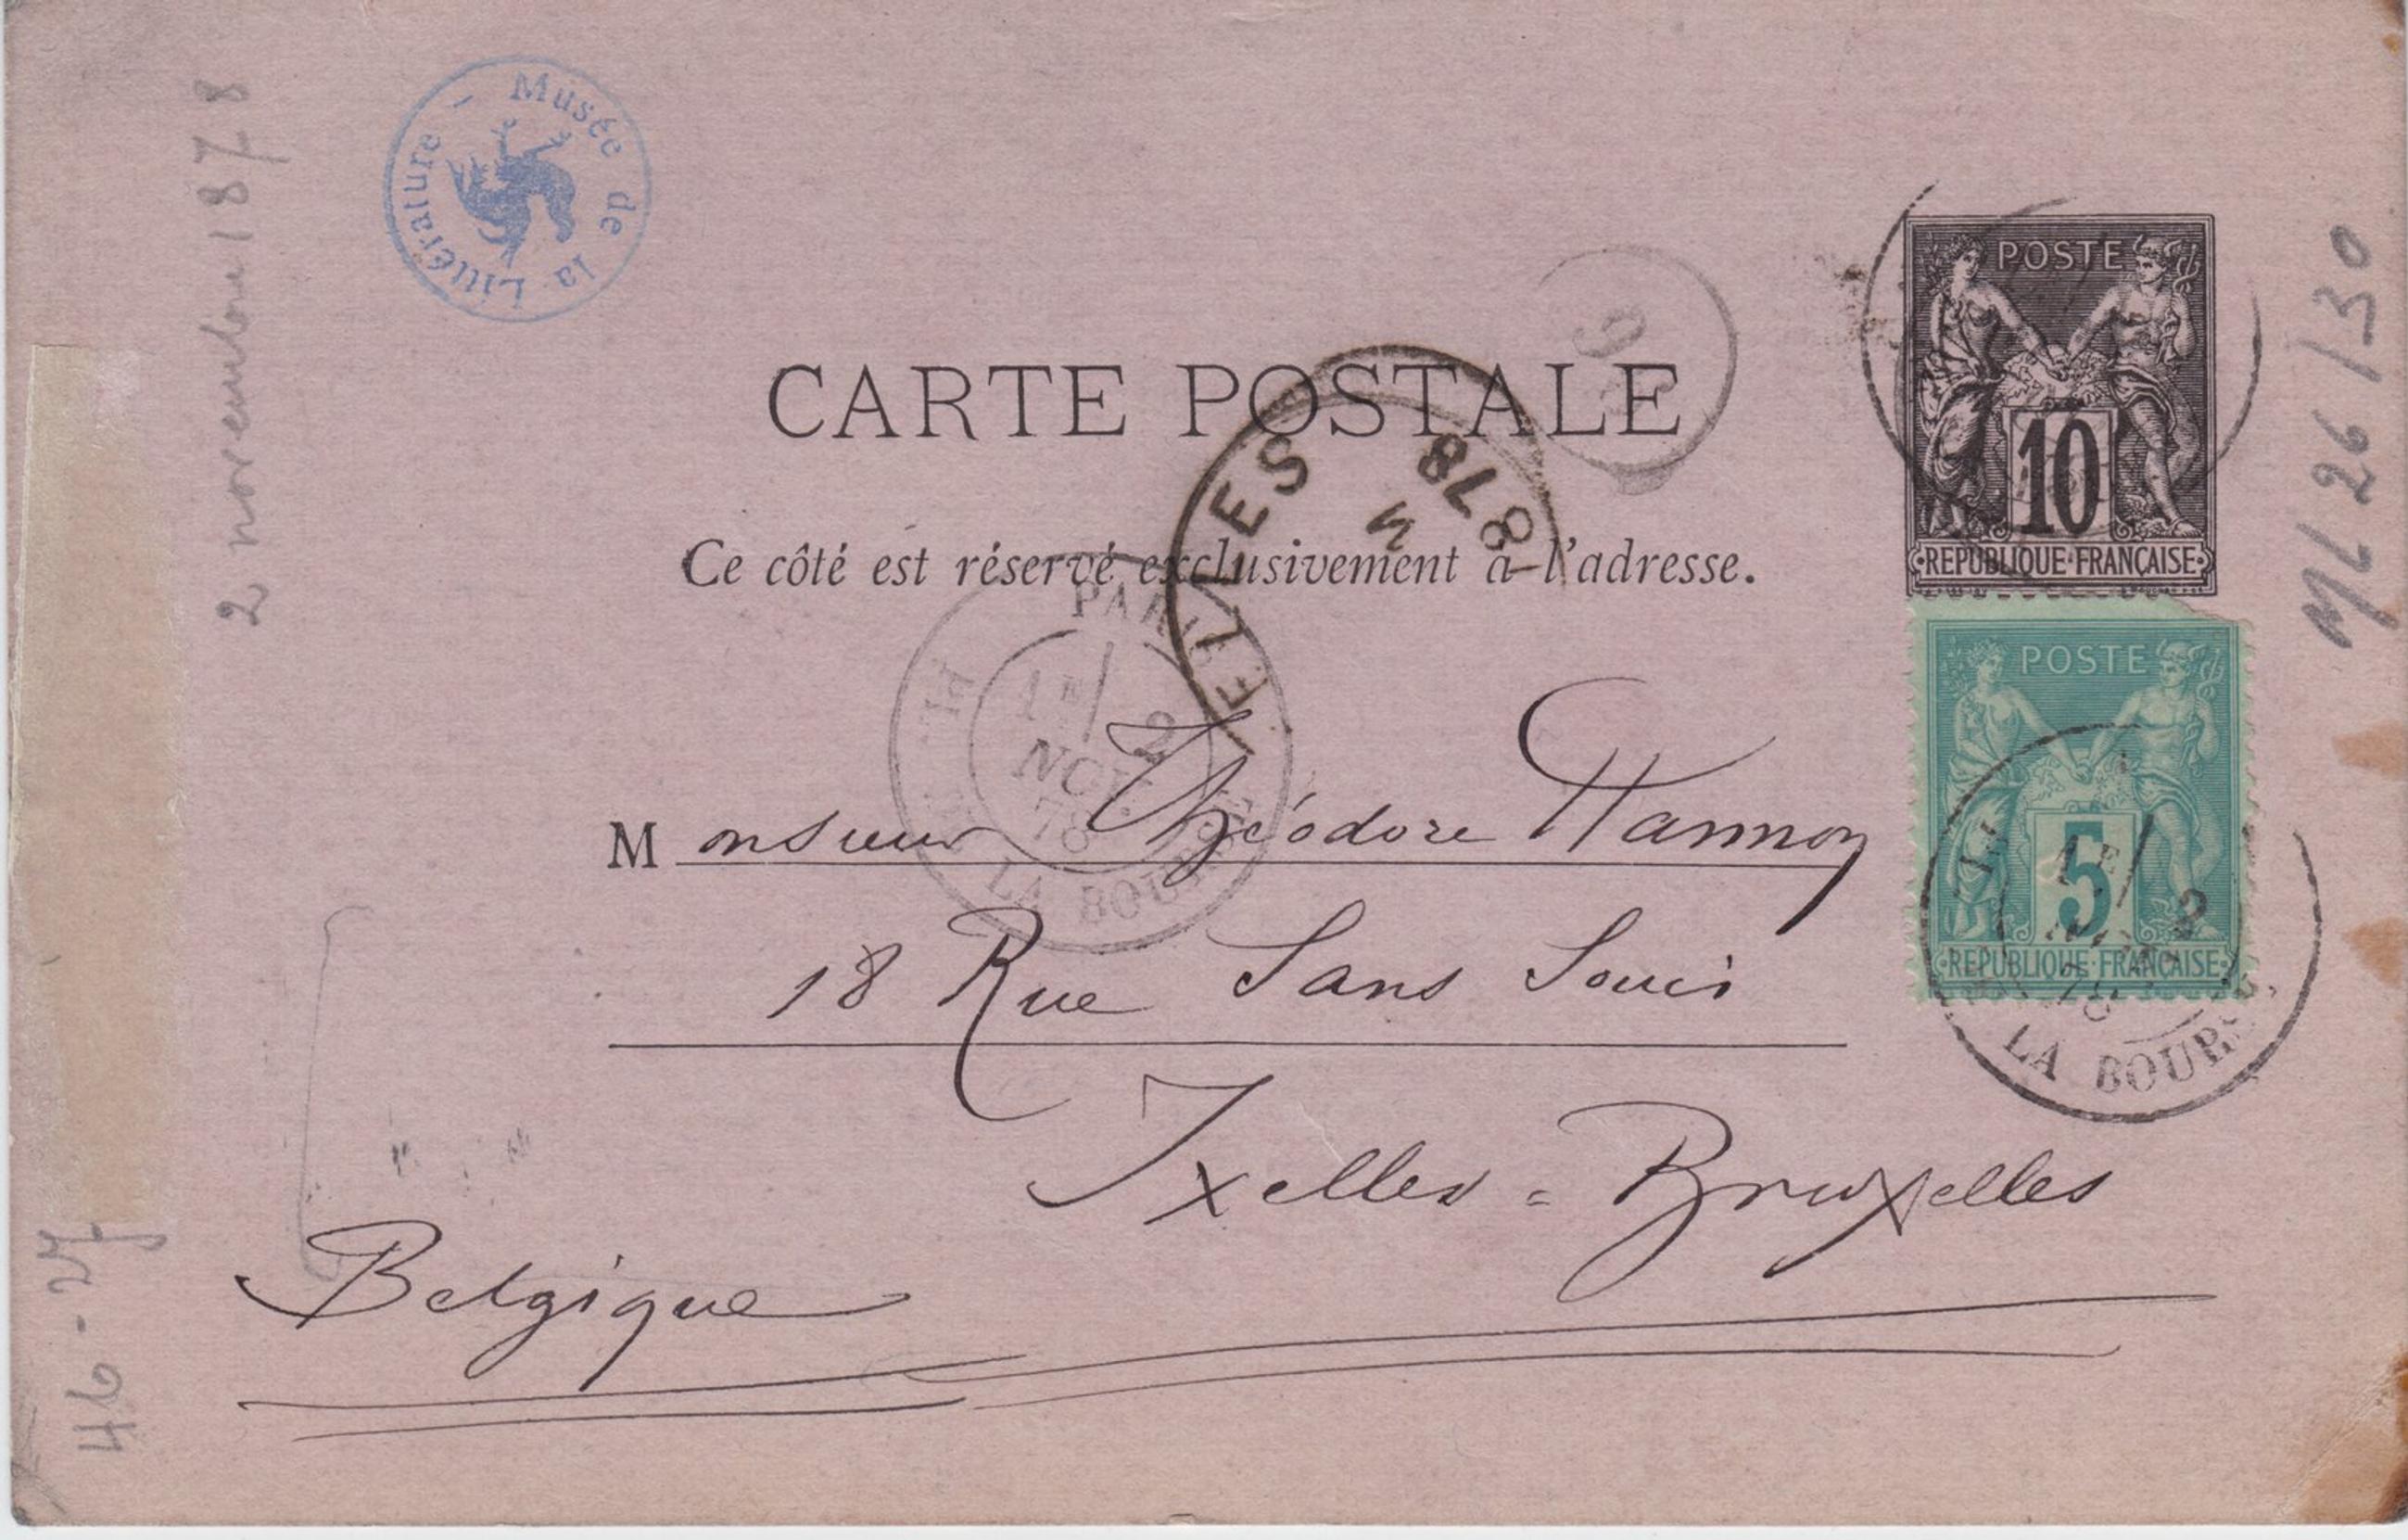 2 novembre 1878
Musée de la Littérature -
CARTE POSTALE
Ce côté est réservé exclusivement à l'adresse.
POSTE
10
REPUBLIQUE FRANÇAISE
ML 26/30
ELLES
1878
PARIS
1E/ 2
NOV.
78
LA BOURSE
POSTE
5
REPUBLIQUE FRANÇAISE
1E/ 2
78
LA BOURSE
Monsieur Théodore Hannon
18 Rue Sans Souci
Ixelles = Bruxelles
Belgique
46-27